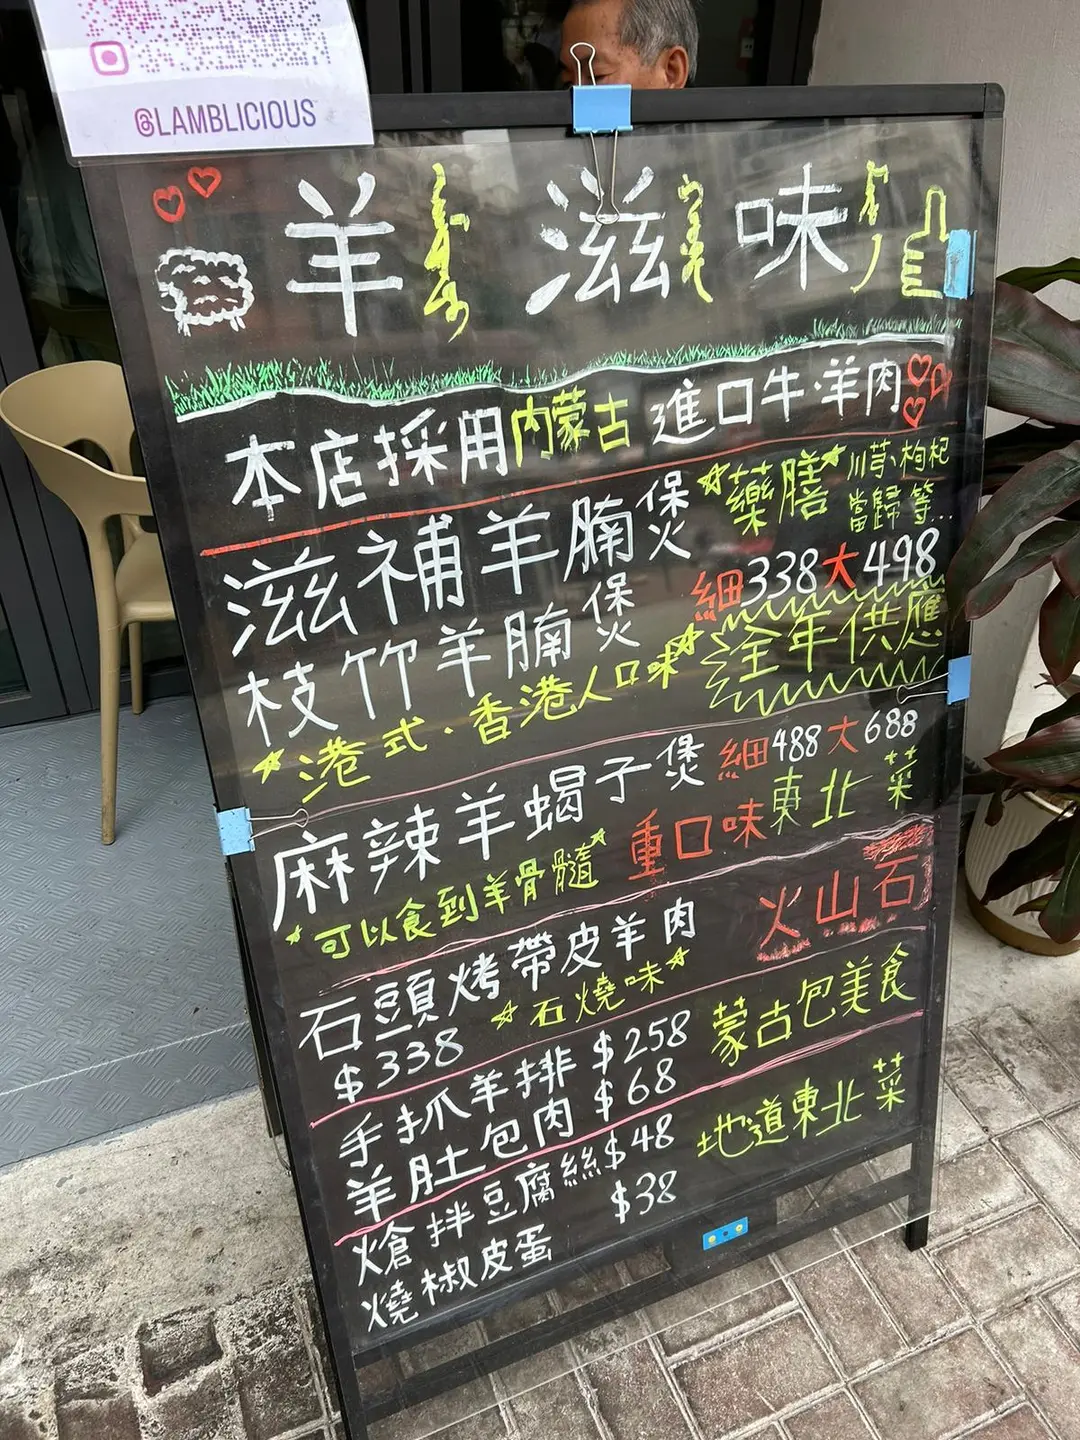 @LAMBLICIOUS
羊滋味
本店採用內蒙古進口牛·羊肉
滋補羊腩煲 藥膳 川芎·枸杞
當歸等...
細338大498
枝竹羊腩煲 全年供應
港式·香港人口味
麻辣羊蝎子煲 細488大688
可以食到羊骨髓 重口味東北菜
石頭烤帶皮羊肉 火山石
$338 石燒味
手抓羊排 $258 蒙古包美食
羊肚包肉 $68
熗拌豆腐絲$48 地道東北菜
燒椒皮蛋 $38